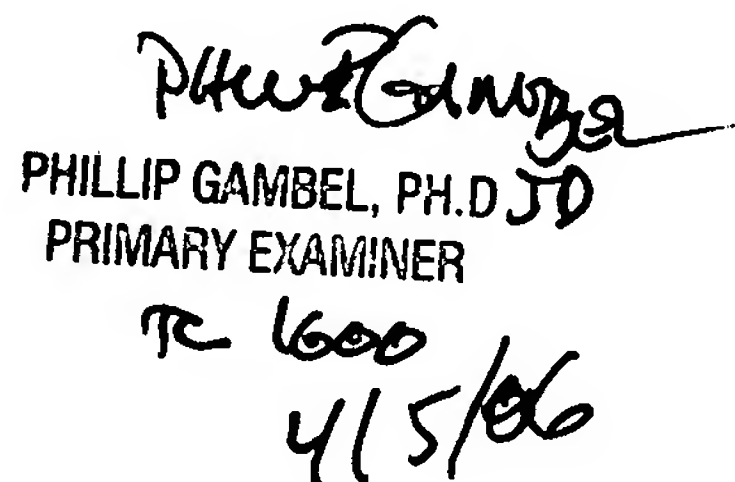 Phillip Gambel
PHILLIP GAMBEL, PH.D JD
PRIMARY EXAMINER
TC 1600
4/5/06